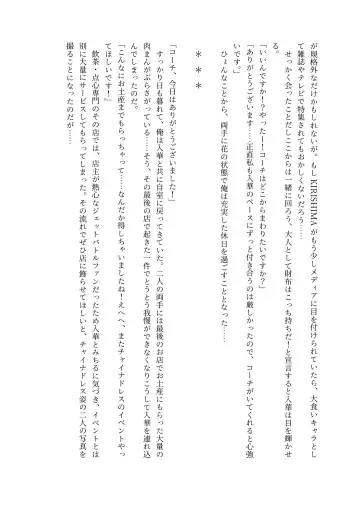 が規格外なだけかもしれないが。もしKIRISHIMAがもう少しメディアに目を付けられていたら、大食いキャラとし
て雑誌やテレビで特集されてもおかしくないだろう……
　せっかく会ったことだしここからは一緒に回ろう、大人として財布はこっち持ちだ！と宣言すると入華は目を輝かせ
る。
「いいんですか！？やったー！コーチはどこからまわりたいですか？」
「ありがとうございます……正直私も入華のペースにずっと付き合うのは厳しかったので、コーチがいてくれると心強
いです。」
　ひょんなことから、両手に花の状態で俺は充実した休日を過ごすこととなった……
＊　＊　＊
「コーチ、今日はありがとうございました！」
　すっかり日も暮れて、俺は入華と共に自室に戻ってきていた。二人の両手には最後のお店でお土産にもらった大量の
肉まんがぶらさがっている……そう、その最後の店で起きた一件でとうとう我慢ができなくなりこうして入華を連れ込
んでしまったのだ。
「こんなにお土産までもらっちゃって……なんだか得しちゃいましたね！えへへ、またチャイナドレスのイベントやっ
てほしいです！」
　飲茶・点心専門のその店では、店主が熱心なジェットバトルファンだったため入華とみちるに気づき、イベントとは
別に大量にサービスしてもらってしまった。その流れでぜひ店に飾らせてほしいと、チャイナドレス姿の二人の写真を
撮ることになったのだが……